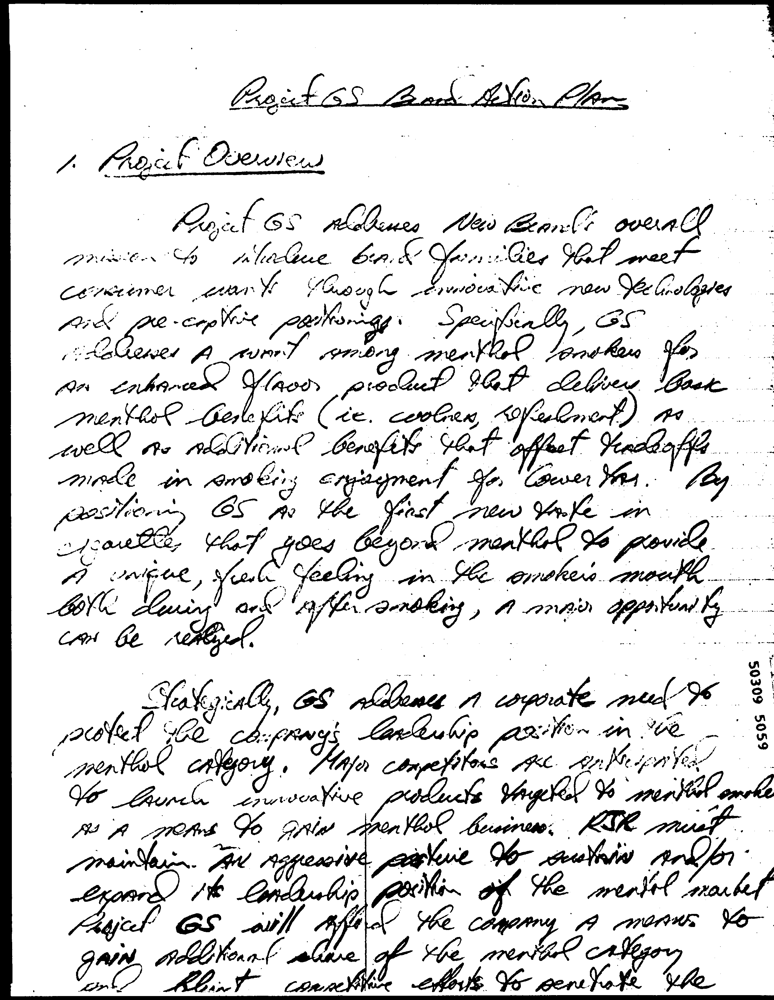 Project GS Brand Action Plan
1. Project Overview
Project GS Addresses New Brand's overall
mission to introduce brand families that meet
consumer wants through innovative new technologies
and pre-emptive positionings. Specifically, GS
Addresses A want among menthol smokers for
an enhanced flavor product that delivers basic
menthol benefits (ie. coolness, refreshment) as
well as additional benefits that offset tradeoffs
made in smoking enjoyment for lower tar. By
positioning GS as the first new taste in
cigarettes that goes beyond menthol to provide
A unique, fresh feeling in the smoker's mouth
both during and after smoking, a major opportunity
can be realized.
Strategically, GS addresses a corporate need to
protect the company's leadership position in the
menthol category. Major competitors are anticipated
to launch innovative products targeted to menthol smoke
as a means to gain menthol business. RJR must
maintain an aggressive posture to sustain and/or
expand its leadership position of the menthol market
Project GS will afford the company a means to
gain additional share of the menthol category
and blunt competitive efforts to penetrate the
50309 5059